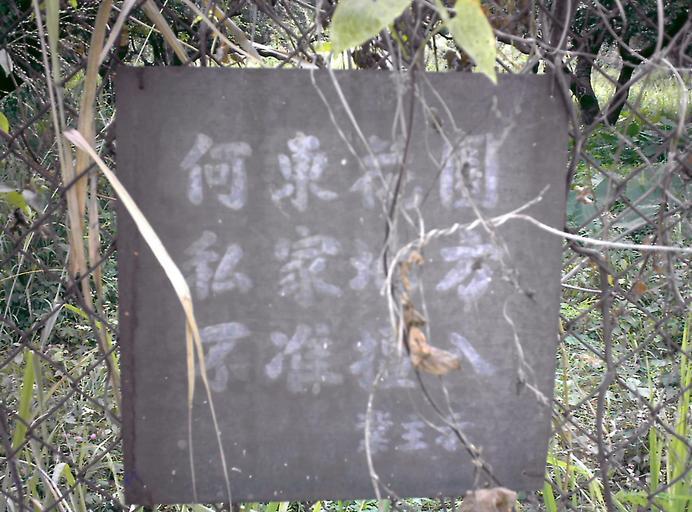 何東花園
私家地方
不准擅入
業主示